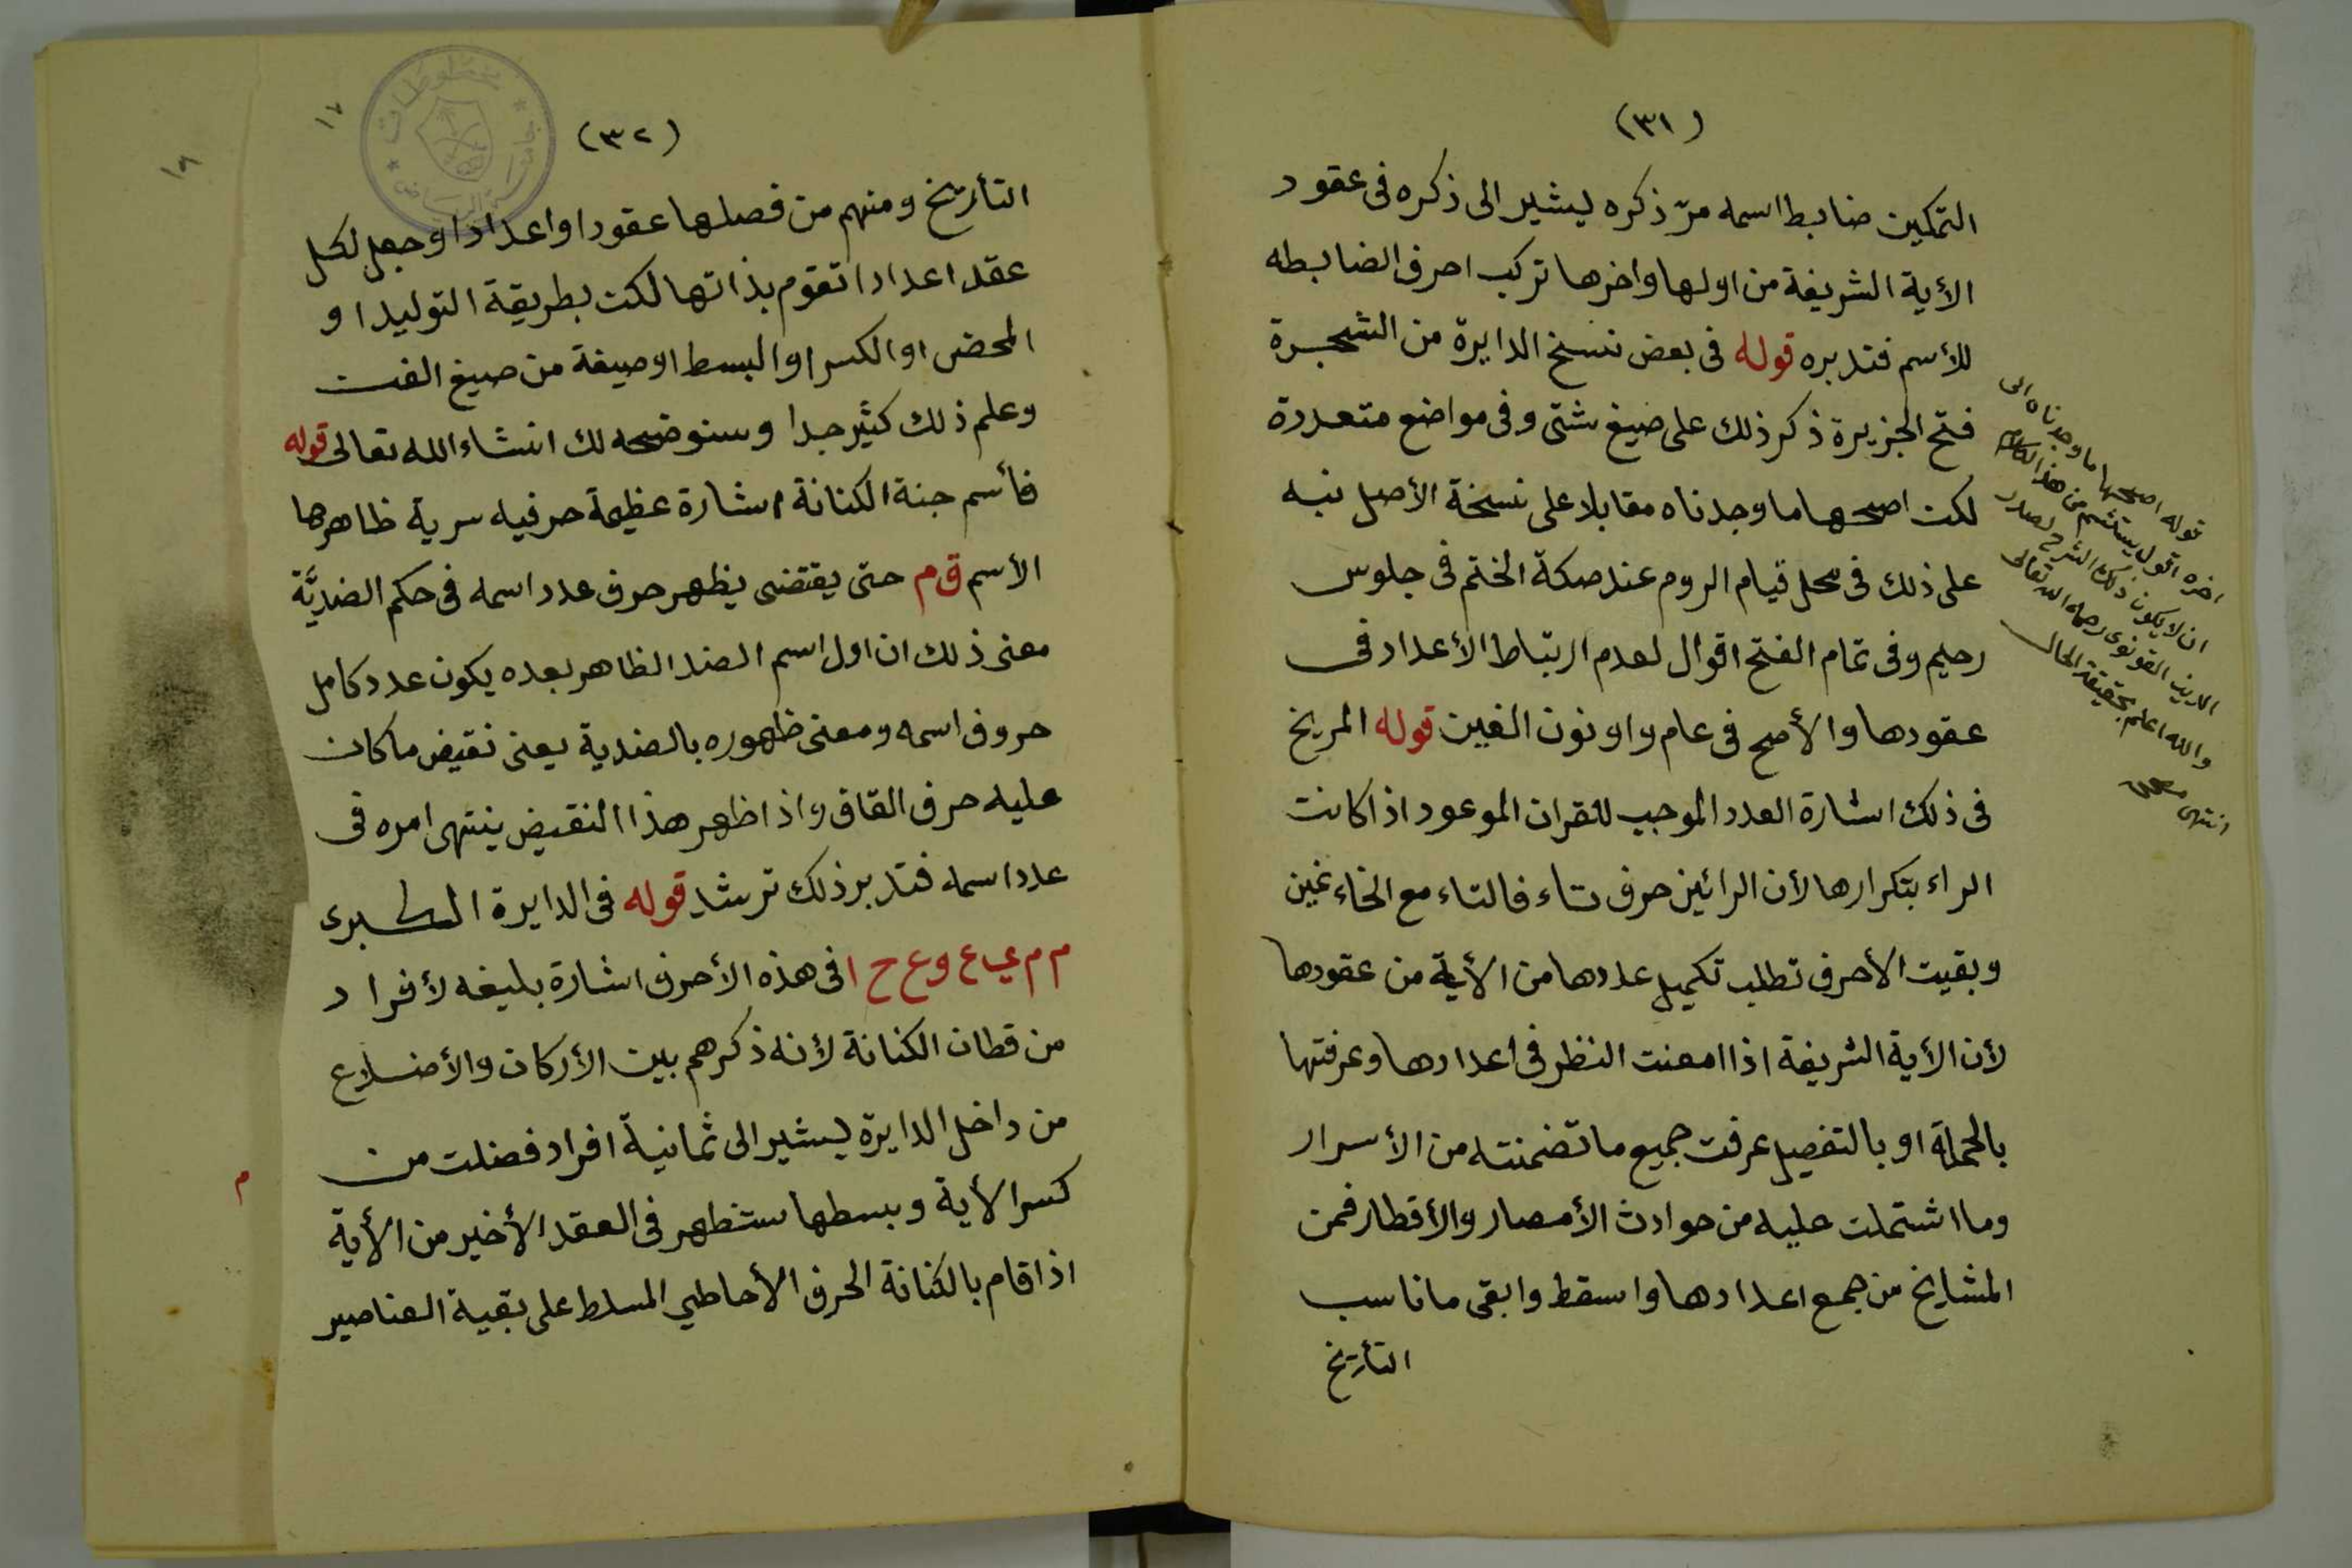 (٣١)
التمكين ضابط اسمه مرّ ذكره ليشير الى ذكره فى عقود
الأية الشريفة من اولها واخرها تركب احرف الضابطه
للأسم فتدبره قوله فى بعض نسخ الدايرة من الشجرة
فتح الجزيرة ذكر ذلك على صيغ شتى وفى مواضع متعددة
لكن اصحها ما وجدناه مقابلا على نسخة الأصل نبه
على ذلك فى محل قيام الروم عند صكة الختم فى جلوس
رحيم وفى تمام الفتح اقوال لعدم ارتباط الأعداد فى
عقودها والأصح فى عام واو نون الغين قوله المريخ
فى ذلك اشارة العدد الموجب للقران الموعود اذا كانت
الراء بتكرارها لأن الرائين حرف تاء فالتاء مع الخاء غين
وبقيت الأحرف تطلب تكميل عددها من الأية من عقودها
لأن الأية الشريفة اذا امعنت النظر فى اعدادها وعرفتها
بالجملة او بالتفصيل عرفت جميع ما تضمنته من الأسرار
وما اشتملت عليه من حوادث الأمصار والأقطار فمن
المشايخ من جمع اعدادها واسقط وابقى ما ناسب
التأريخ
قوله اصحها ما وجدناه الى
اخره اقول يستشم من هذا الكلام
ان لا يكون ذلك الشرح لصدر
الدين القونوى رحمه الله تعالى
والله اعلم بحقيقة الحال
انتهى
(٣٢)
١٧
التأريخ ومنهم من فصلها عقودا واعدادا وجعل لكل
عقد اعدادا تقوم بذاتها لكن بطريقة التوليد او
المحض او الكسر او البسط او صيغة من صيغ الفن
وعلم ذلك كثير جدا وسنوضحه لك انشاء الله تعالى قوله
فأسم جنة الكنانة اشارة عظيمة حرفيه سرية ظاهرها
الأسم ق م حتى يقتضى يظهر حرف عدد اسمه فى حكم الضديَّة
معنى ذلك ان اول اسم الضد الظاهر بعده يكون عدد كامل
حروف اسمه ومعنى ظهوره بالضدية يعنى نقيض ما كان
عليه حرف القاف واذا ظهر هذا النقيض ينتهى امره فى
عدد اسمه فتدبر ذلك ترشد قوله فى الدايرة الكبرى
م م ي ع و ع ح ا فى هذه الأحرف اشارة بليغه لأفراد
من قطان الكنانة لأنه ذكرهم بين الأركان والأضلاع
من داخل الدايرة ليشير الى ثمانية افراد فضلت من
كسر الأية وبسطها ستظهر فى العقد الأخير من الأية
اذا قام بالكنانة الحرف الأحاطي المسلط على بقية العناصير
م